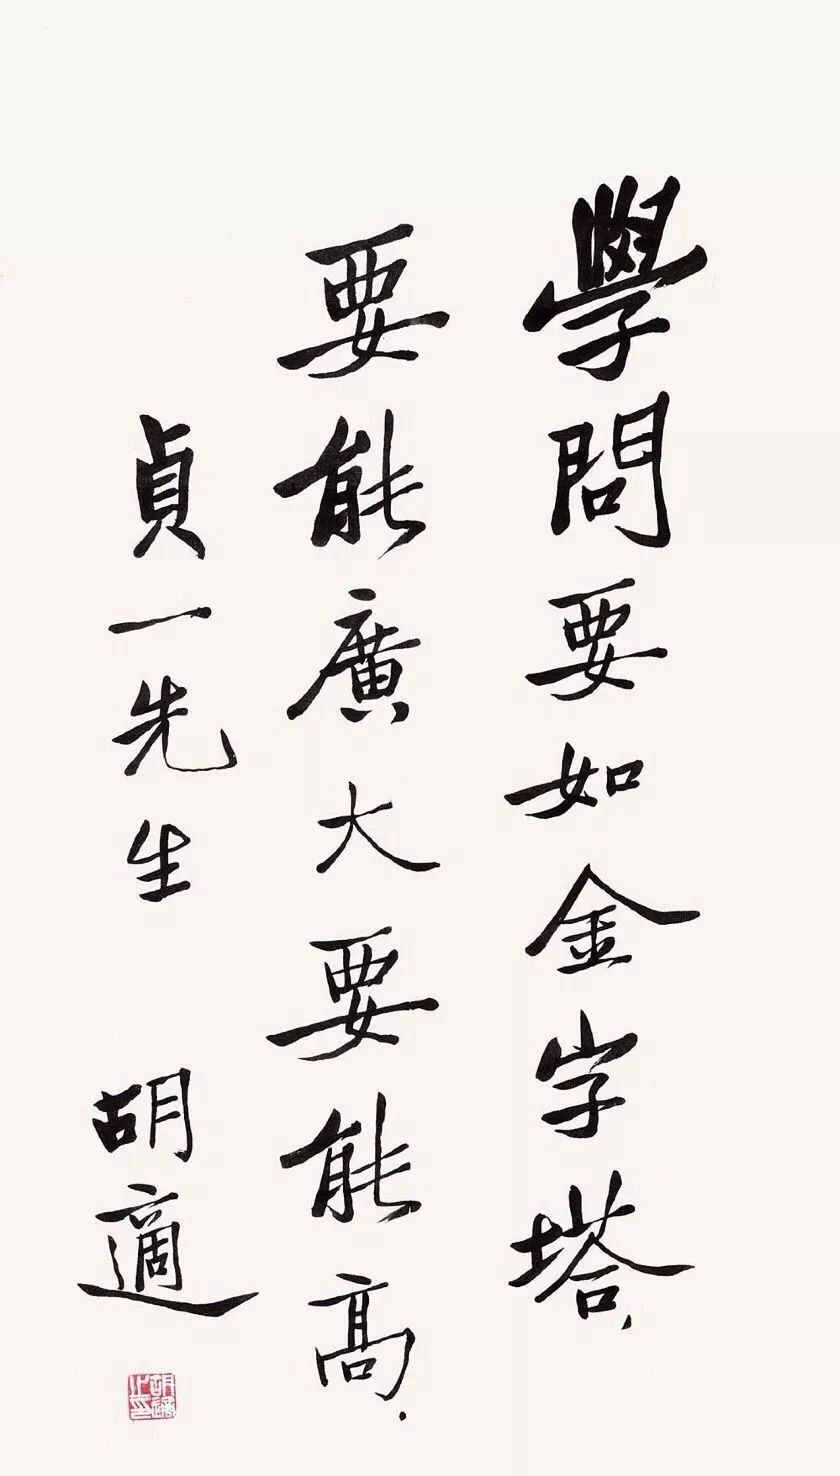 學問要如金字塔，
要能廣大要能高．
貞一先生
胡適
胡適之印